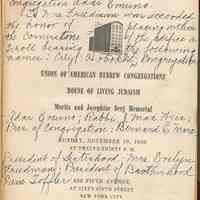 Congregation Adas Emuno.
To Mrs. Friedman was accorded
the honor of placing within
the Cornerstone of the edifice a
Scroll bearing the following
names: City of Hoboken, Congregation
UNION OF AMERICAN HEBREW CONGREGATIONS
HOUSE OF LIVING JUDAISM
Morris and Josephine Berg Memorial
Adas Emuno; Rabbi J Max Weis;
Pres. of Congregation: Bernard E.
SUNDAY, NOVEMBER 19, 1950
AT TWELVE-THIRTY P. M.
President of Sisterhood; Mrs. Evelyn
Friedman; President of Brotherhood
Toffler
838 FIFTH AVENUE,
AT SIXTY-FIFTH STREET
NEW YORK CITY